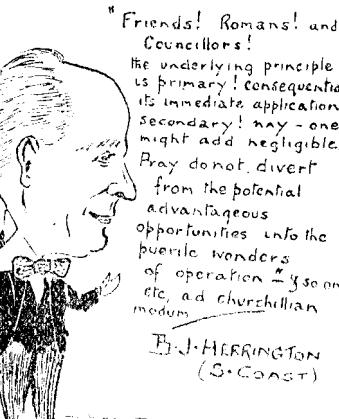 "Friends! Romans! and
Councillors!
the underlying principle
is primary! consequentia
its immediate application
secondary! nay - one
might add negligible.
Pray do not divert
from the potential
advantageous
opportunities into the
puerile wonders
of operation " y so on
etc, ad churchillian
modum
B.J. HERRINGTON
(S. COAST)